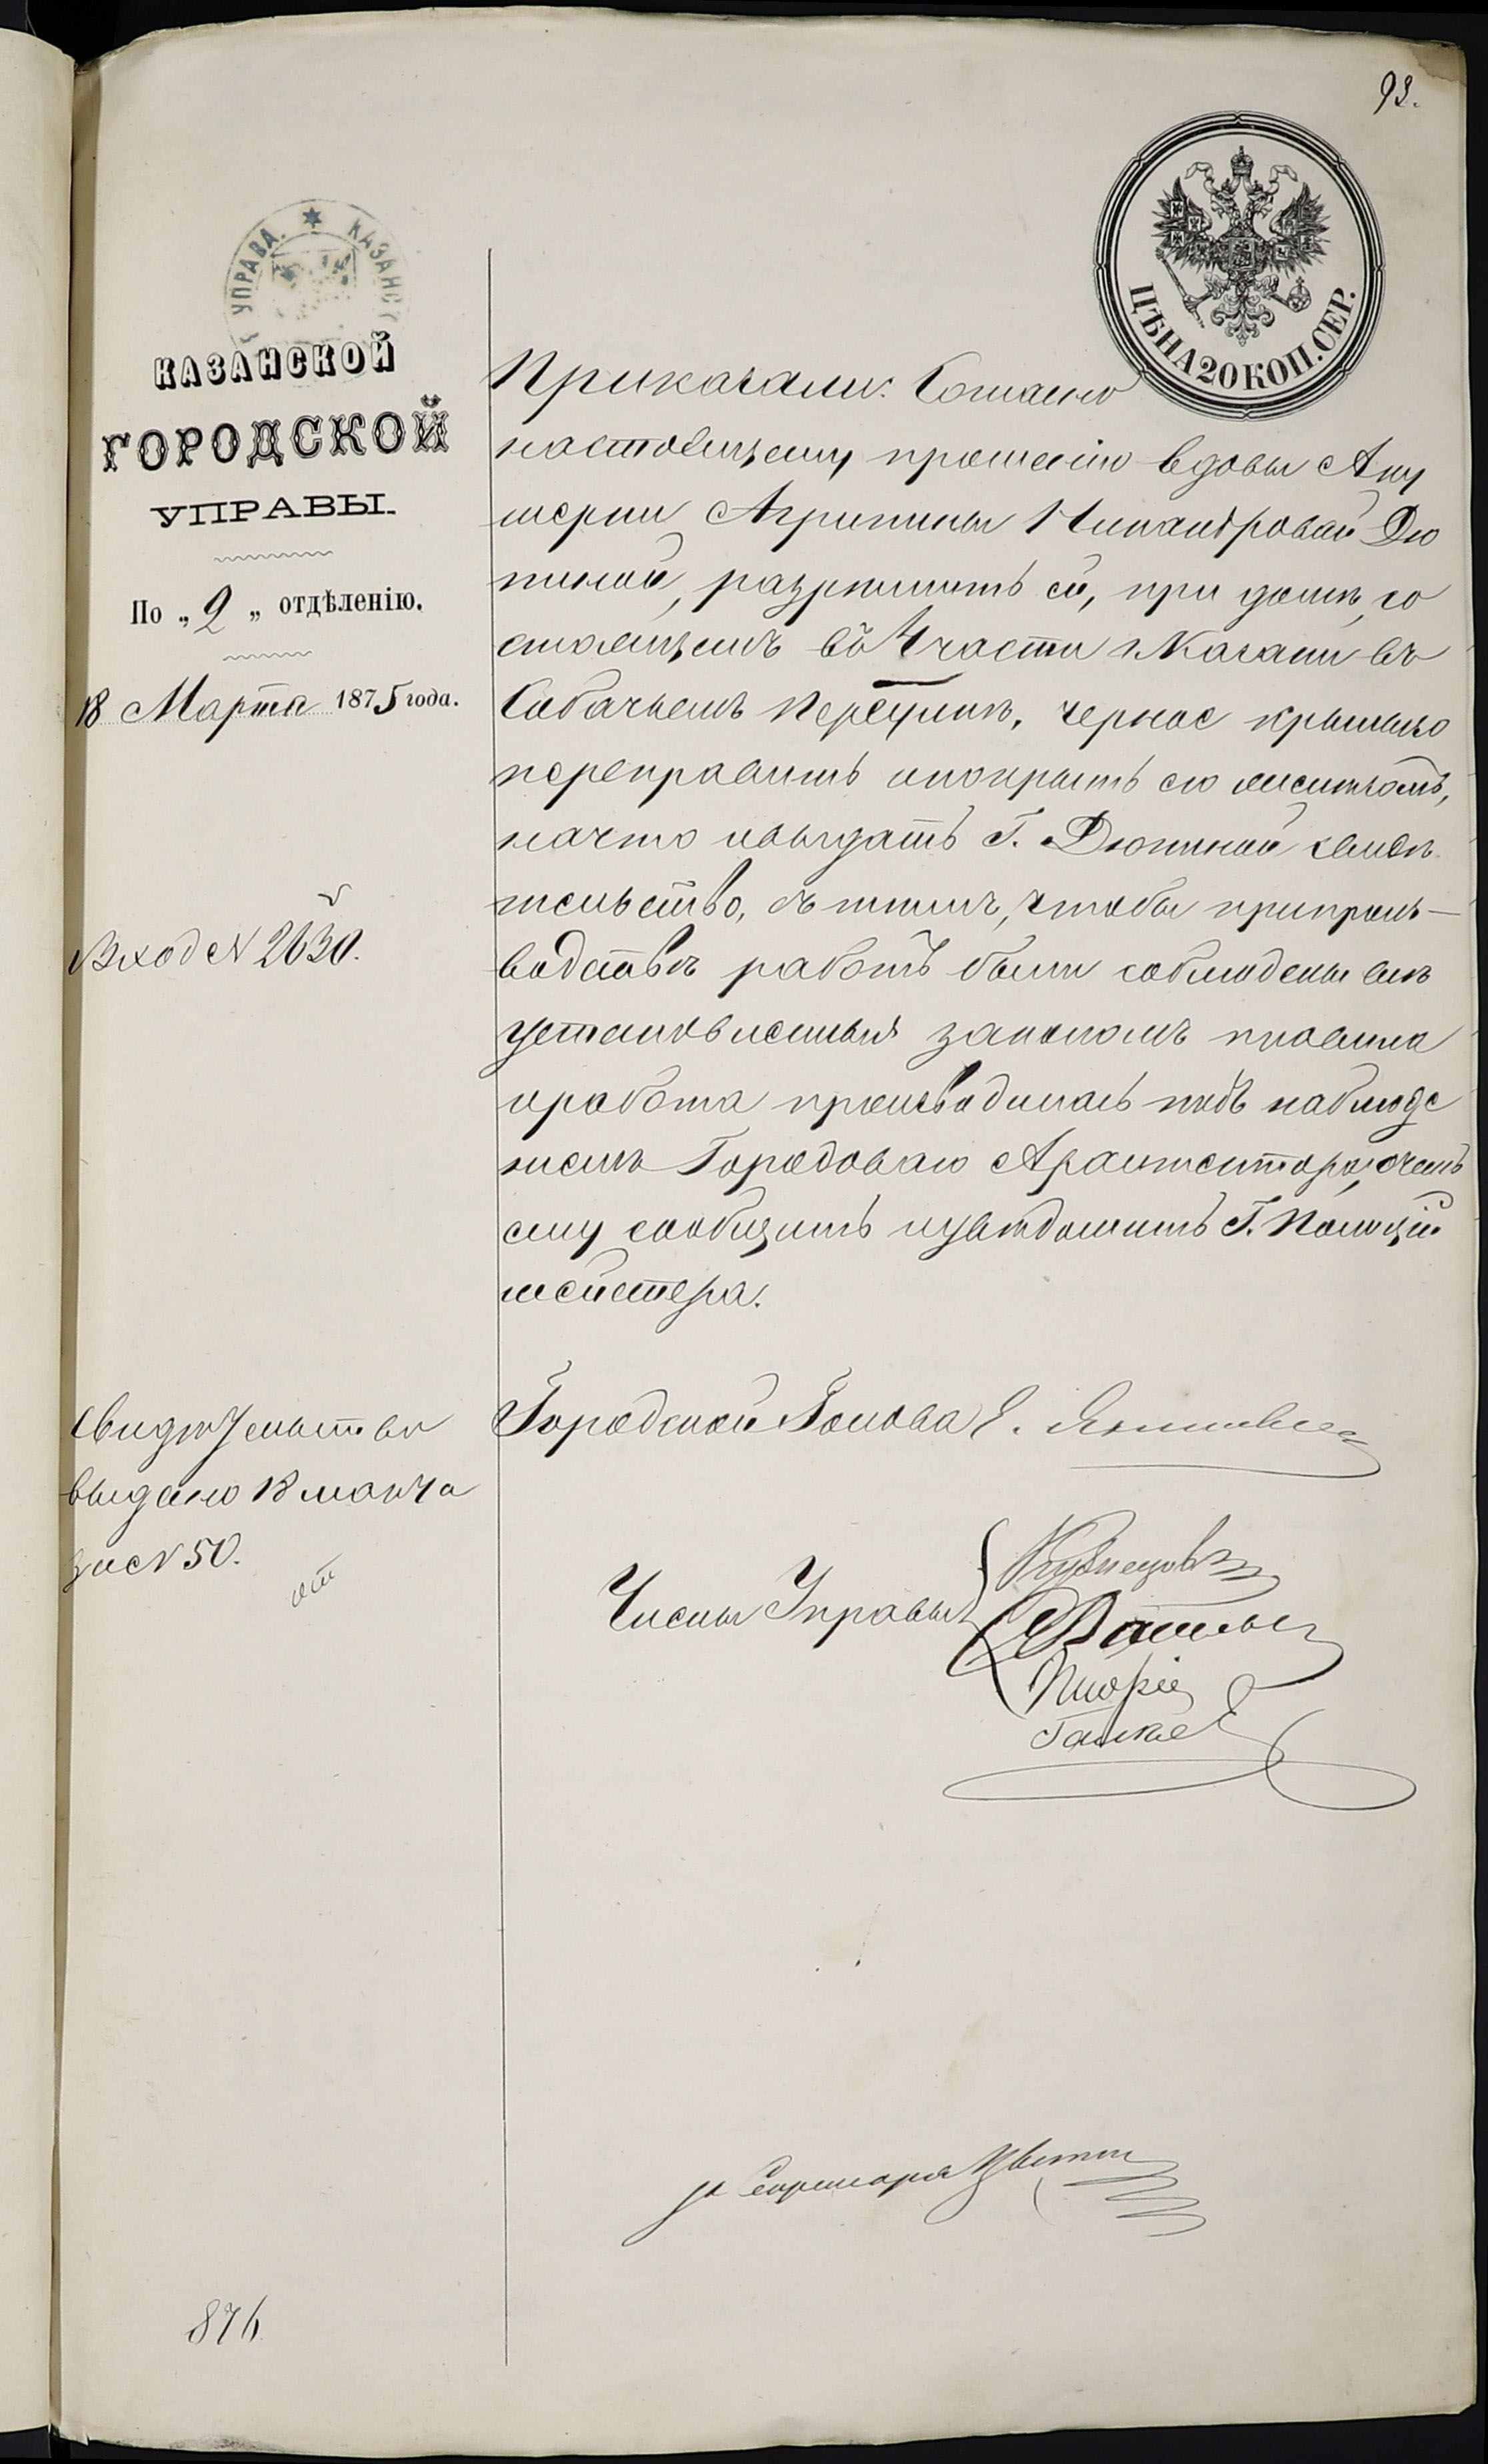 93.
УПРАВА. КАЗАНС
ЦѢНА 20 КОП. СЕР.
КАЗАНСКОЙ
ГОРОДСКОЙ
УПРАВЫ.
По „2„ отдѣленію.
18 Марта 1875 года.
Вход № 2630.
Свидѣтельство
выдано 18 марта
за № 50.
876
Приказали: Согласно
настоящему прошенію вдовы Аку
шерки Агрипины Никандровой Дю
пиной, разрѣшить ей, при домѣ, со
стоящемъ въ 4 части г. Казани въ
Собачьемъ переулкѣ, черное крыльцо
переправить и покрыть его желѣзомъ,
на что и выдать Г. Дюпиной свидѣ
тельство, съ тѣмъ, чтобы при произ-
водствѣ работъ были соблюдены всѣ
установленныя закономъ правила
и работа производилась подъ наблюде
ніемъ Городоваго Архитектора, о чемъ
ему сообщить и увѣдомить Г. Полицій
мейстера.
Городской Голова Е.
Члены Управы
Кузнецовъ
за Секретаря